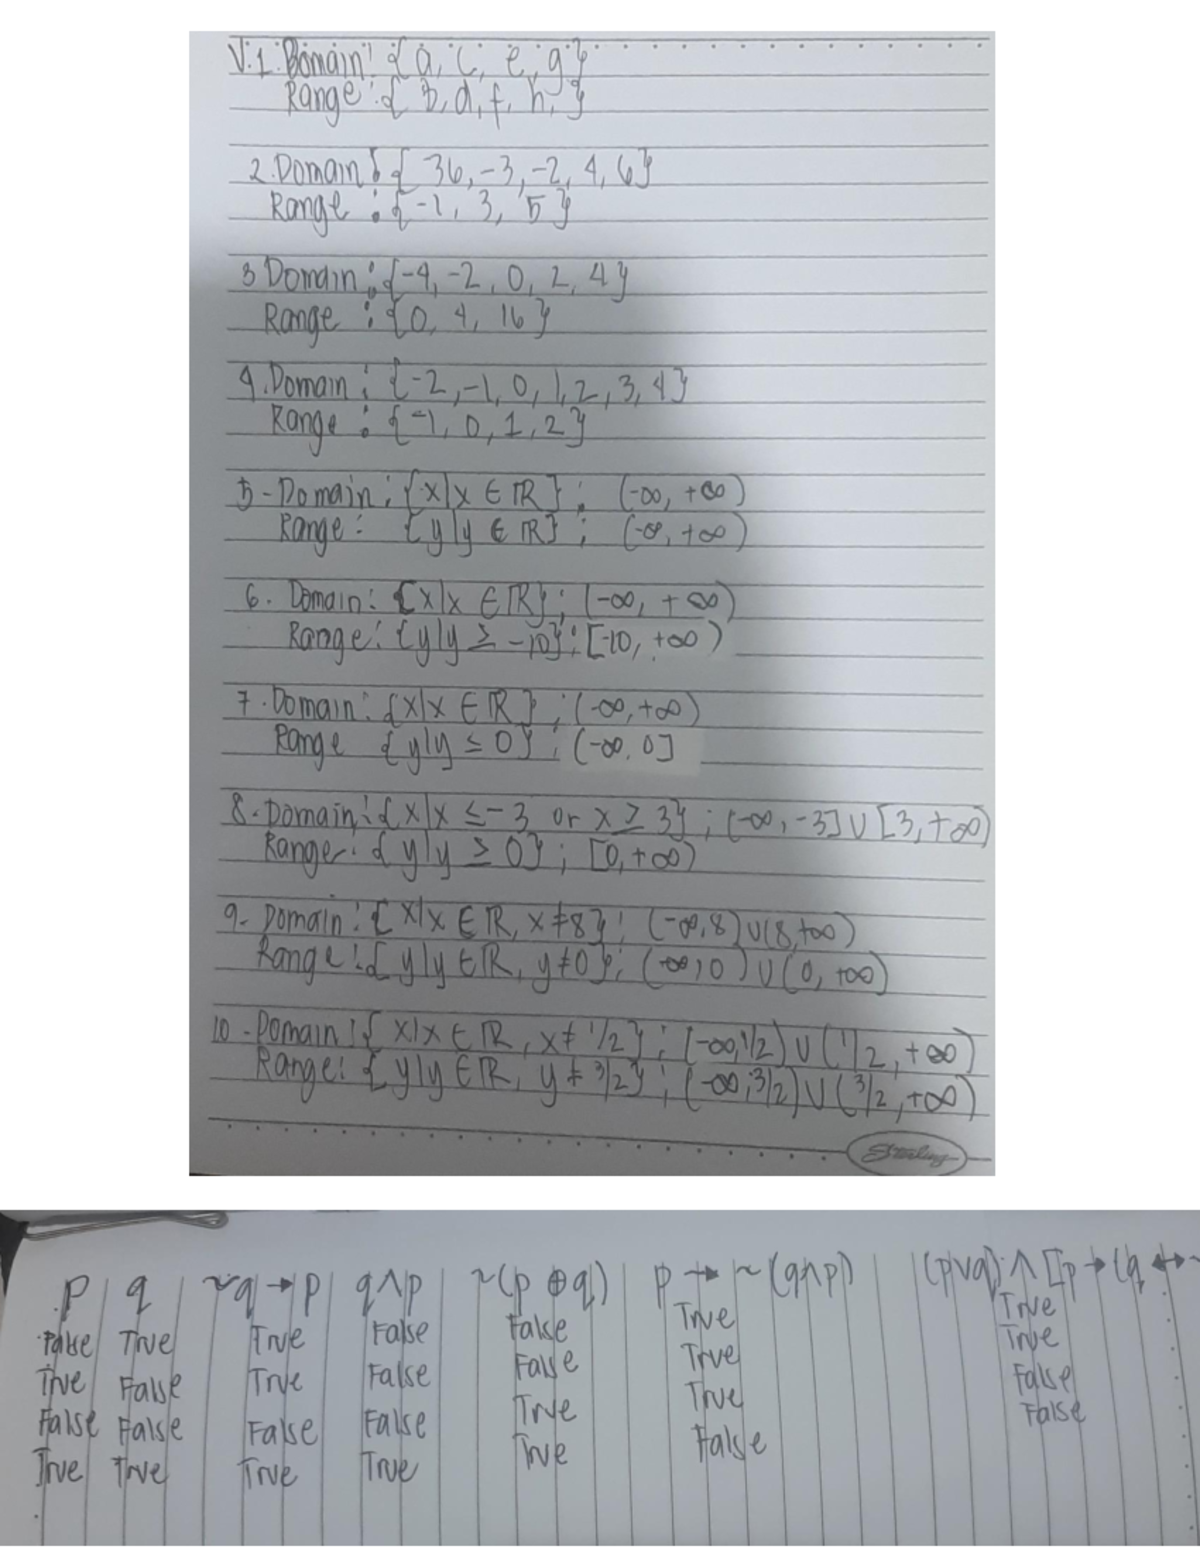 V.1. Domain: {a, c, e, g}
Range: { b, d, f, h, }
2. Domain: { 36, -3, -2, 4, 6}
Range: {-1, 3, 5}
3 Domain: {-4, -2, 0, 2, 4}
Range: {0, 4, 16}
4. Domain: {-2, -1, 0, 1, 2, 3, 4}
Range: {-1, 0, 1, 2}
5- Domain: {x|x ∈ ℝ}; (-∞, +∞)
Range: {y|y ∈ ℝ}; (-∞, +∞)
6. Domain: {x|x ∈ ℝ}; (-∞, +∞)
Range: {y|y ≥ -10}; [-10, +∞)
7. Domain: {x|x ∈ ℝ}; (-∞, +∞)
Range {y|y ≤ 0}; (-∞, 0]
8. Domain: {x|x ≤ -3 or x ≥ 3}; (-∞, -3] ∪ [3, +∞)
Range: {y|y ≥ 0}; [0, +∞)
9- Domain: {x|x ∈ ℝ, x ≠ 8}; (-∞, 8) ∪ (8, +∞)
Range: {y|y ∈ ℝ, y ≠ 0}; (-∞, 0) ∪ (0, +∞)
10- Domain: {x|x ∈ ℝ, x ≠ 1/2}; (-∞, 1/2) ∪ (1/2, +∞)
Range: {y|y ∈ ℝ, y ≠ 3/2}; (-∞, 3/2) ∪ (3/2, +∞)
Sterling
p q ~q → p q ∧ p ~(p ⊕ q) p → ~(q ∧ p) (p ∨ q) ∧ [p → (q ↔ ~
False True True False False True True
True False True False False True True
False False False False True True False
True True True True True False False